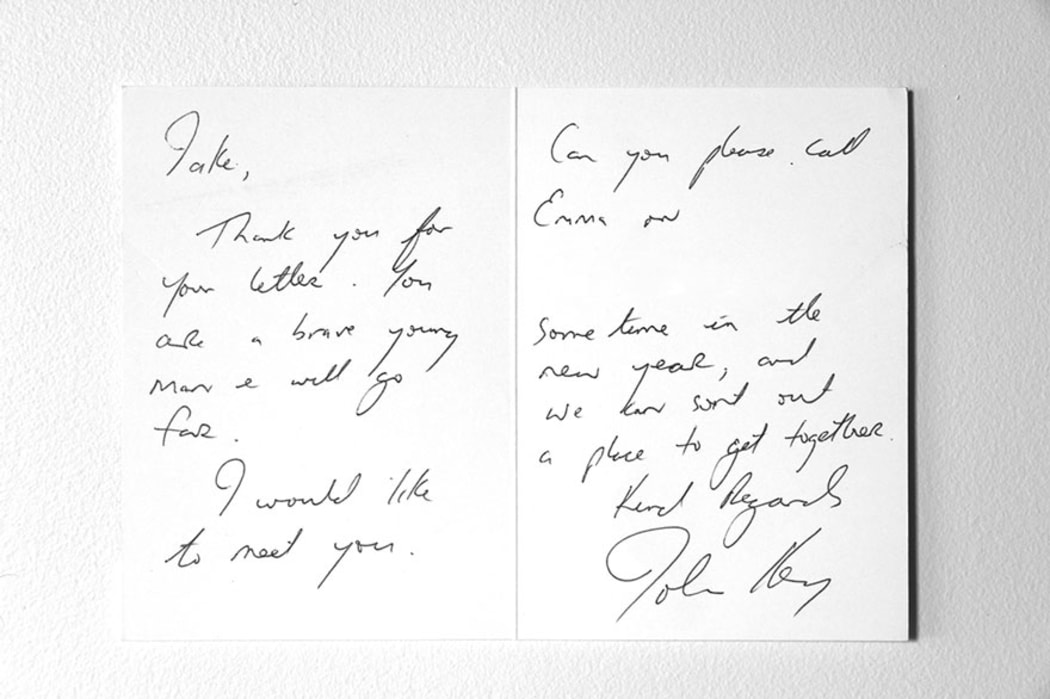 Jake,
Thank you for
your letter. You
are a brave young
man & will go
far.
I would like
to meet you.
Can you please call
Emma on
Some time in the
new year, and
we can sort out
a place to get together.
Kind Regards
John Key